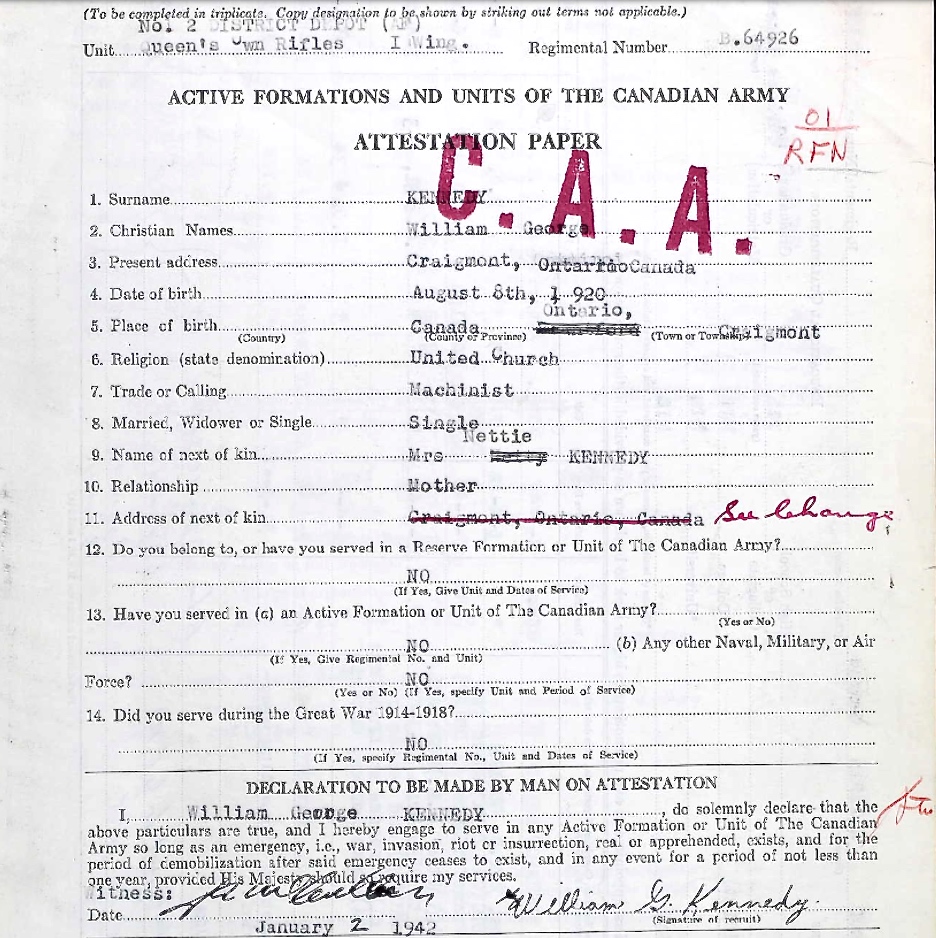 (To be completed in triplicate. Copy designation to be shown by striking out terms not applicable.)
No. 2 DISTRICT DEPOT
Unit Queen's Own Rifles I Wing. Regimental Number B.64926
ACTIVE FORMATIONS AND UNITS OF THE CANADIAN ARMY
01
ATTESTATION PAPER
RFN
C.A.A.
1. Surname KENNEDY
2. Christian Names William George
3. Present address Craigmont, Ontario Canada
4. Date of birth August 8th, 1920
Ontario,
5. Place of birth Canada Craigmont
(Country) (County or Province) (Town or Township)
6. Religion (state denomination) United Church
7. Trade or Calling Machinist
8. Married, Widower or Single Single
Nettie
9. Name of next of kin Mrs Betty KENNEDY
10. Relationship Mother
11. Address of next of kin Craigmont, Ontario, Canada See Change
12. Do you belong to, or have you served in a Reserve Formation or Unit of The Canadian Army?
NO
(If Yes, Give Unit and Dates of Service)
13. Have you served in (a) an Active Formation or Unit of The Canadian Army?
(Yes or No)
NO (b) Any other Naval, Military, or Air
(If Yes, Give Regimental No. and Unit)
Force? NO
(Yes or No) (If Yes, specify Unit and Period of Service)
14. Did you serve during the Great War 1914-1918?
NO
(If Yes, specify Regimental No., Unit and Dates of Service)
DECLARATION TO BE MADE BY MAN ON ATTESTATION
I, William George KENNEDY, do solemnly declare that the
above particulars are true, and I hereby engage to serve in any Active Formation or Unit of The Canadian
Army so long as an emergency, i.e., war, invasion, riot or insurrection, real or apprehended, exists, and for the
period of demobilization after said emergency ceases to exist, and in any event for a period of not less than
one year, provided His Majesty should so require my services.
Witness:
William G. Kennedy.
Date (Signature of recruit)
January 2 1942